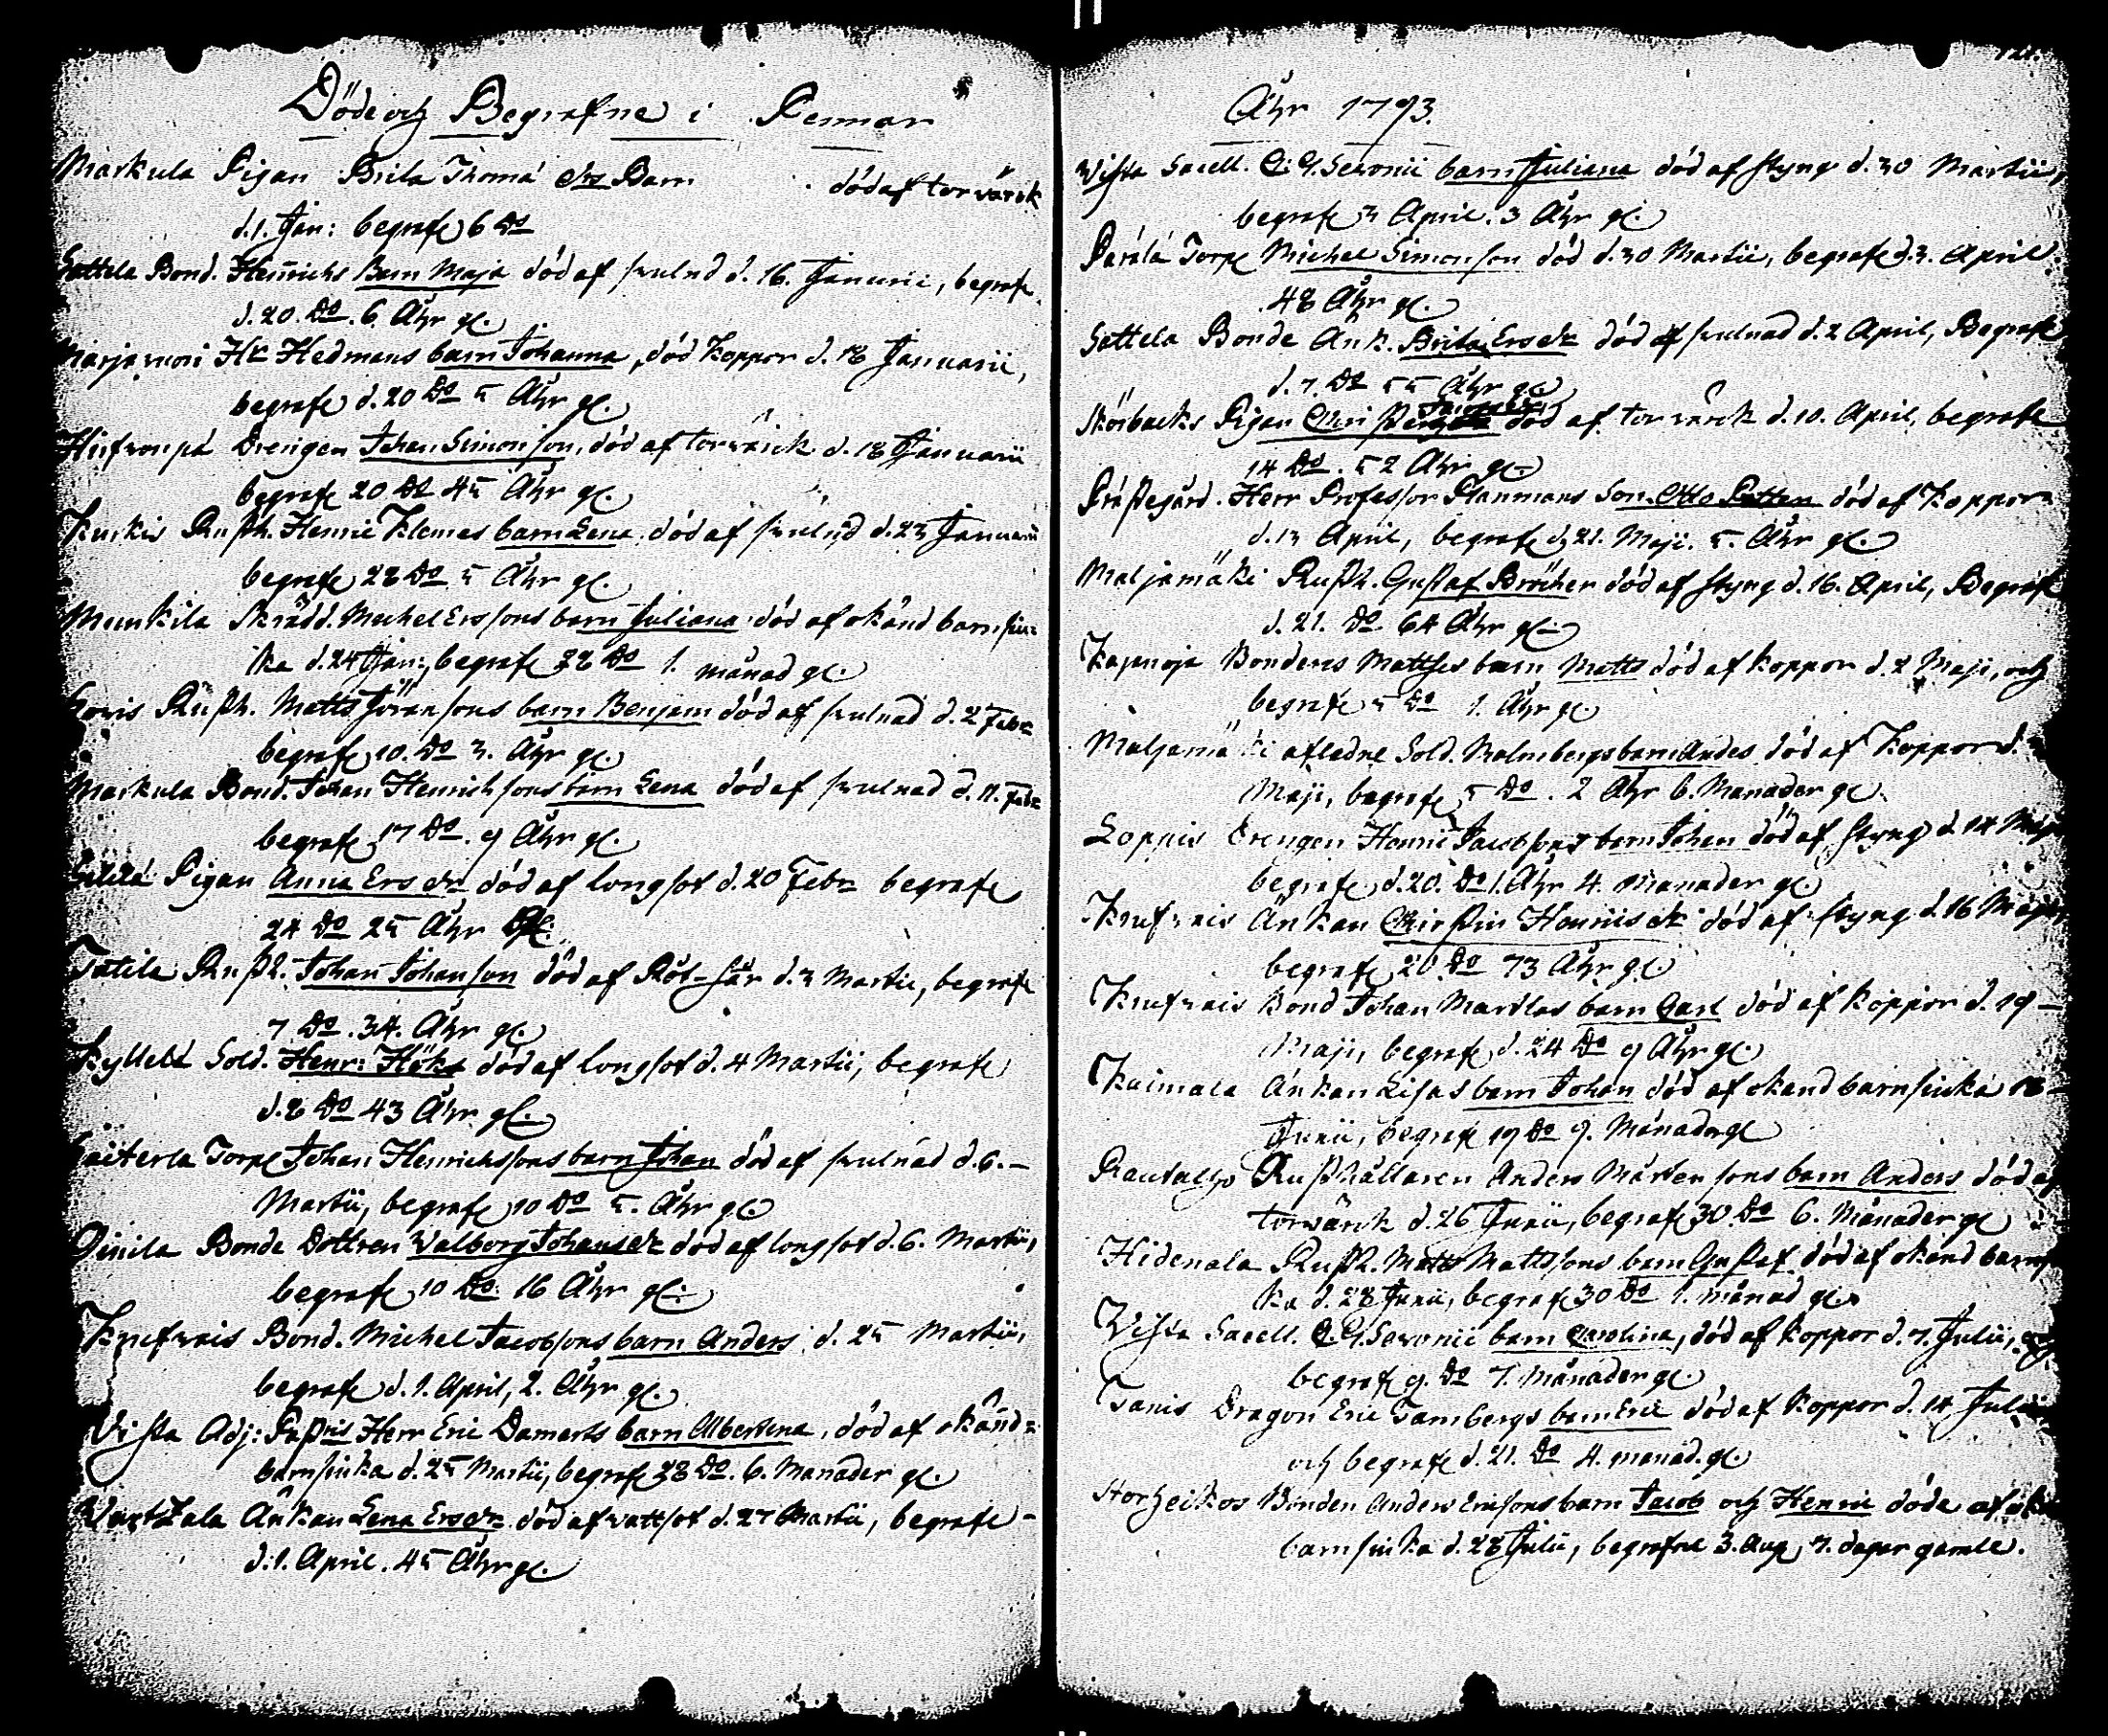 Döde och Begrafne i Pemar
Markula Pigan Brita Thomæ dr Barn död af torvärck
d. 1. Jan: begrafe 6 Do
Sattela Bond. Henrichs Barn Maja död af svulnd d. 16. Januarii, begrafe
d. 20. Do. 6. Åhr gl.
Marjavuori Hr Hedmans barn Johanna, död koppor d. 18 Januarii,
begrafe d. 20 Do 5 Åhr gl.
Drengen Johan Simonson, död af torvärck d. 18 Januarii
begrafe 20 Do 45 Åhr gl.
Kurkis Rusth. Henric Klemes barn Lena död af svulnd d. 23 Januarii
begrafe 28 Do 5 Åhr gl.
Munkila Skrädd. Michel Erssons barn Juliana död af okänd barnsiu=
ka d. 24 Jan:, begrafe 28 Do 1. månad gl.
Rusth. Matts Göransons barn Benjam död af svulnad d. 2 Febr
begrafe 10. Do 3. Åhr gl.
Markula Bond. Johan Henrichsons barn Lena död af svulnad d. 11. Febr
begrafe 17 Do. 9 Åhr gl.
Pigan Anna Ers dr död af longsot d. 20 Febr begrafe
24 Do 25 Åhr gl.
Tatila Rusth. Johan Johanson död af Röt-sår d. 3 Martii, begrafe
7 Do. 34. Åhr gl.
Sold. Henr: Hök död af longsot d. 4 Martii, begrafe
d. 8 Do 43 Åhr gl.
Torp. Johan Henrichssons barn Johan död af svulnad d. 6. -
Martii, begrafe 10 Do 5. Åhr gl.
Qvinila Bonde Dottren Walborg Johans dr död af longsot d. 6. Martii,
begrafe 10 Do. 16 Åhr gl.
Knefvais Bond. Michel Jacobsons barn Anders d. 25 Martii,
begrafe d. 1. April, 2. Åhr gl.
Vista Adj: Pastris Herr Eric Damerts barn Albertina, död af okänd=
barnsiuka d. 25 Martii, begrafe 28 Do. 6. Månader gl.
Änkan Lena Ers dr död af vattsot d. 27 Martii, begrafe -
d. 1. April. 45 Åhr gl.
Åhr 1793.
Vista Sacell. C. G. Sevonii barn Juliana död af styng d. 30 Martii,
begrafe 3 April. 3 Åhr gl.
Torp Michel Simonson död d. 30 Martii, begrafe d. 3. April
48 Åhr gl.
Sattela Bonde Änk. Brita Ers dr död af svulnad d. 2 April, Begrafe
d. 7. Do 55 Åhr gl.
Skörbacks Pigan död af torvärck d. 10. April, begrafe
14 Do. 52 Åhr gl.
Prästegård. Herr Professor Planmans Son Otto död af Koppor
d. 13 April, begrafe d. 21. Maji. 5. Åhr gl.
Maljamäki Rusth. Gustaf Bröcher död af styng d. 16. April, Begrafe
d. 21. Do 64 Åhr gl.
Karnoja Bondens Matthes barn Matts död af koppor d. 2 Maji, och
begrafe 5 Do 1. Åhr gl.
Maljamäki afledne Sold. Malmbergs barn Andes död af Koppor d.
Maji, begrafe 5 Do. 2 Åhr 6. Månader gl.
Loppis Drengen Henric Jacobsons barn Johan död af styng d. 14 Maji
begrafe d. 20. Do 1. Åhr 4. Månader gl.
Knefvais Änkan Chirstin Henriis dr död af styng d. 16 Maji,
begrafe 20 Do 73 Åhr gl.
Knefvais Bond Johan Martlas barn Carl död af koppor d. 19 -
Maji, begrafe d. 24 Do 9 Åhr gl.
Kaimala Änkan Lisas barn Johan död af okand barnsiuka 18 -
Junii, begrafe 19 Do 9. Månader gl
Rautalho Rusthållaren Anders Mårtensons barn Anders död af
torvärck d. 26 Junii, begrafe 30 Do 6. Månader gl
Hidenala Rusth. Matts Mattssons barn Gustaf död af okänd barnsiu
ka d. 28 Junii, begrafe 30 Do 1. månad gl.
Vista Sacell. C. G. Sevonii barn Carolina, död af koppor d. 7. Julii, och
begrafe 9. Do 7. månader gl.
Tanis Dragon Eric Tambergs barn Eric död af Koppor d. 14 Julii
och begrafe d. 21. Do 4. månad. gl.
Storheikos Bonden Anders Ericsons barn Jacob och Henric döde af okä
barnsiuka d. 28 Julii, begrafne 3. Aug, 7. dagar gamle.